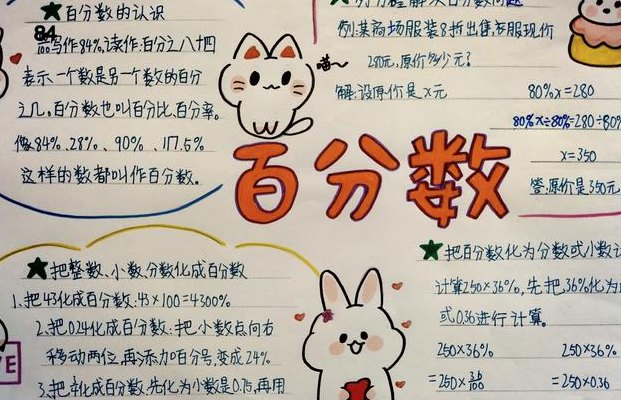 ★百分数的认识
84/100写作84%,读作:百分之八十四
表示一个数是另一个数的百分
之几。百分数也叫百分比、百分率。
像84%、28%、90%、117.5%
这样的数都叫作百分数。
喵~
例:某商场服装8折出售,衣服现价
280元,原价多少元?
解:设原价是x元
80%x=280
80%x÷80%=280÷80%
x=350
答:原价是350元
百分数
★把整数、小数、分数化成百分数
1.把43化成百分数:43×100=4300%
2.把0.24化成百分数:把小数点向右
移动两位,再添加百分号,变成24%
化成百分数,先化为小数是0.75,再用
★把百分数化为分数或小数计
计算250×36%,先把36%化为
或0.36进行计算。
250×36%
250×36%
=250×36/100
=250×0.36
VE